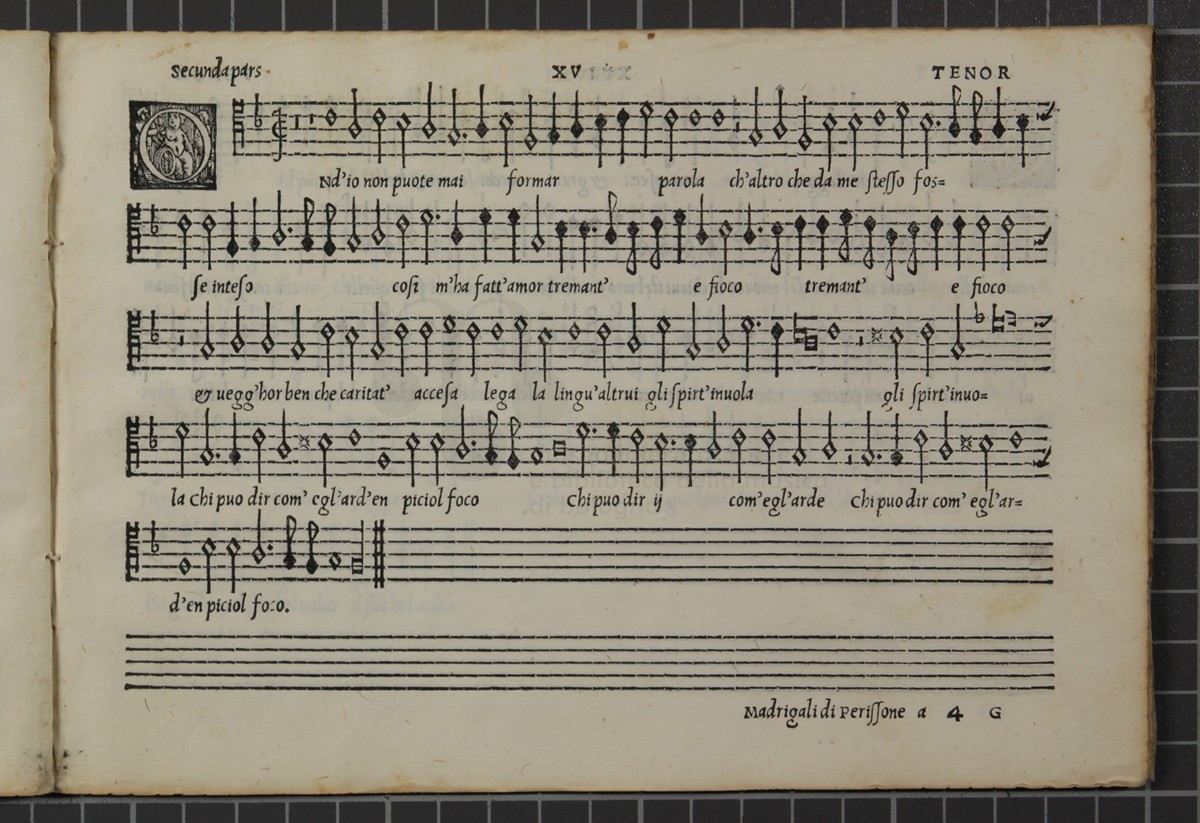 Secunda pars XV TENOR
O Nd'io non puote mai formar parola ch'altro che da me stesso fos=
se inteso cosi m'ha fatt'amor tremant' e fioco tremant' e fioco
et uegg'hor ben che caritat' accesa lega la lingu'altrui gli spirt'inuola gli spirt'inuo=
la Chi puo dir com' egl'ard'en piciol foco Chi puo dir ij com'egl'arde Chi puo dir com' egl'ar=
d'en piciol foco.
Madrigali di Perissone a 4 G